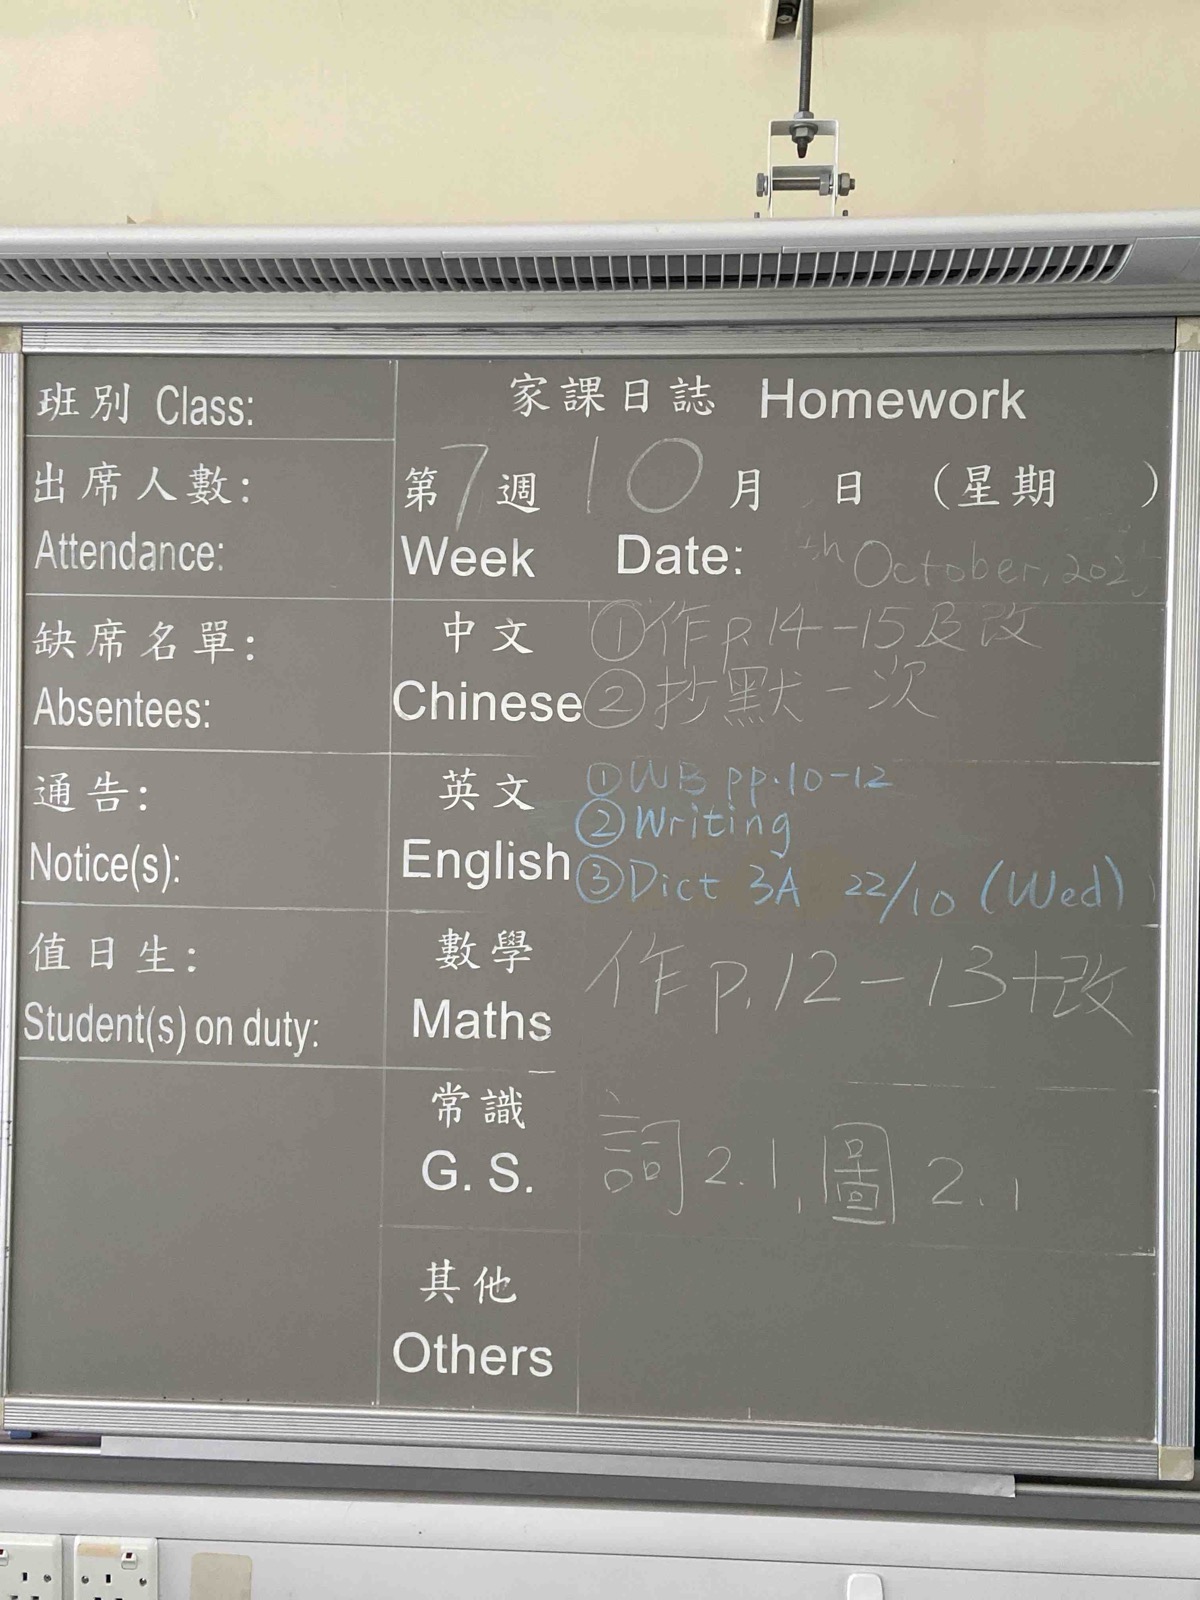 班別 Class:
出席人數:
Attendance:
缺席名單:
Absentees:
通告:
Notice(s):
值日生:
Student(s) on duty:
家課日誌 Homework
第7週 10月 日 (星期 )
Week Date: th October, 202
中文 ①作p.14-15及改
Chinese ②抄默一次
英文 ①WB pp.10-12
②Writing
English ③Dict 3A 22/10 (Wed)
數學 作p.12-13+改
Maths
常識
G. S. 詞2.1, 圖2.1
其他
Others